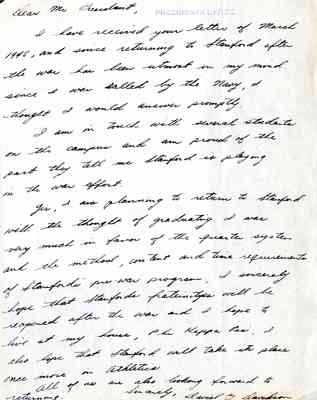 Dear Mr. President,
PRESIDENT'S OFFICE
I have received your letter of March
and since returning to Stanford after
the war has been utmost in my mind
since I was called by the Navy, I
thought I would answer promptly.
I am in touch with several students
on the campus and am proud of the
part they tell me Stanford is playing
in the war effort.
Yes, I am planning to return to Stanford
with the thought of graduating. I was
very much in favor of the quarter system
and the method, content and time requirements
of Stanfords pre war program. I sincerely
hope that Stanfords fraternitys will be
reopened after the war and I hope to
live at my house, Phi Kappa Psi. I
also hope that Stanford will take its place
once more in Athletics
All of us are also looking forward to
returning.
Sincerely,